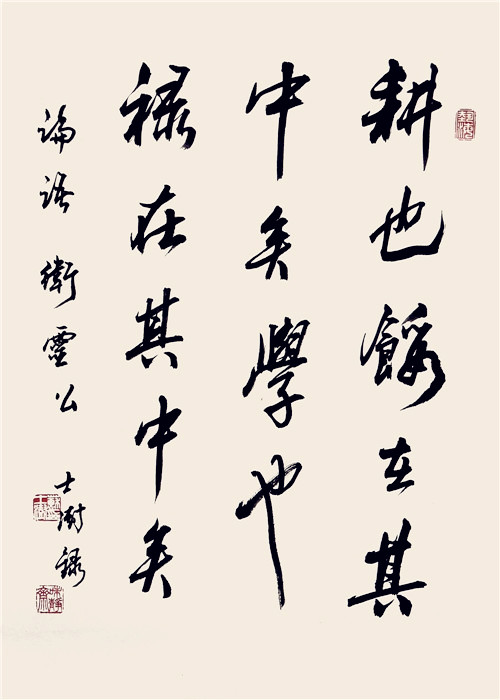 耕也餒在其
中矣學也
禄在其中矣
論語衛靈公 士澍録